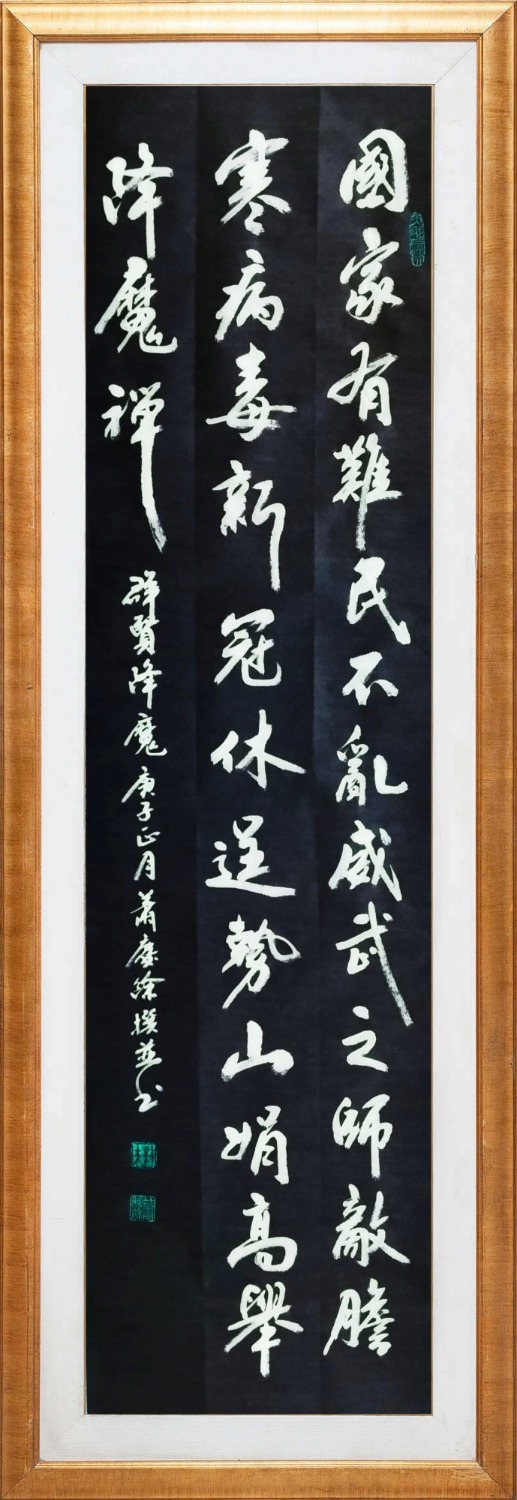 國家有難民不亂威武之師敵膽
寒病毒新冠休逞勢山娟高舉
降魔禅
群賢降魔庚子正月蕭徐撰並书